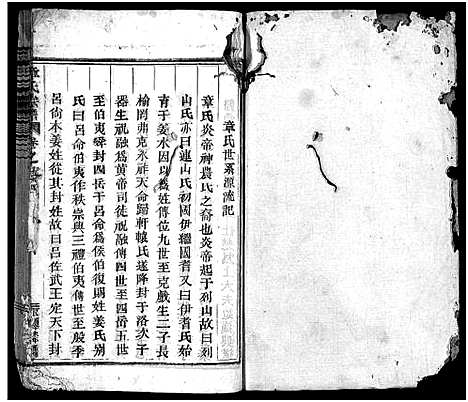 章氏世系源流記
章氏炎帝神農氏之裔也炎帝起于列山故曰列
山氏亦曰連山氏初國伊繼國耆又曰伊耆氏始
育于姜水因以爲姓傳位九世至克戲生二子長
榆罔弗克永祚天命歸軒轅氏遂降封于洛次子
器生祝融爲黃帝司徒祝融傳四世至四岳五世
至伯夷舜封四岳于呂命爲侯伯復賜姓姜氏别
氏曰呂命伯夷作秩崇典三禮伯夷傳世至殷季
呂尚本姜姓從其封姓故曰呂佐武王定天下封